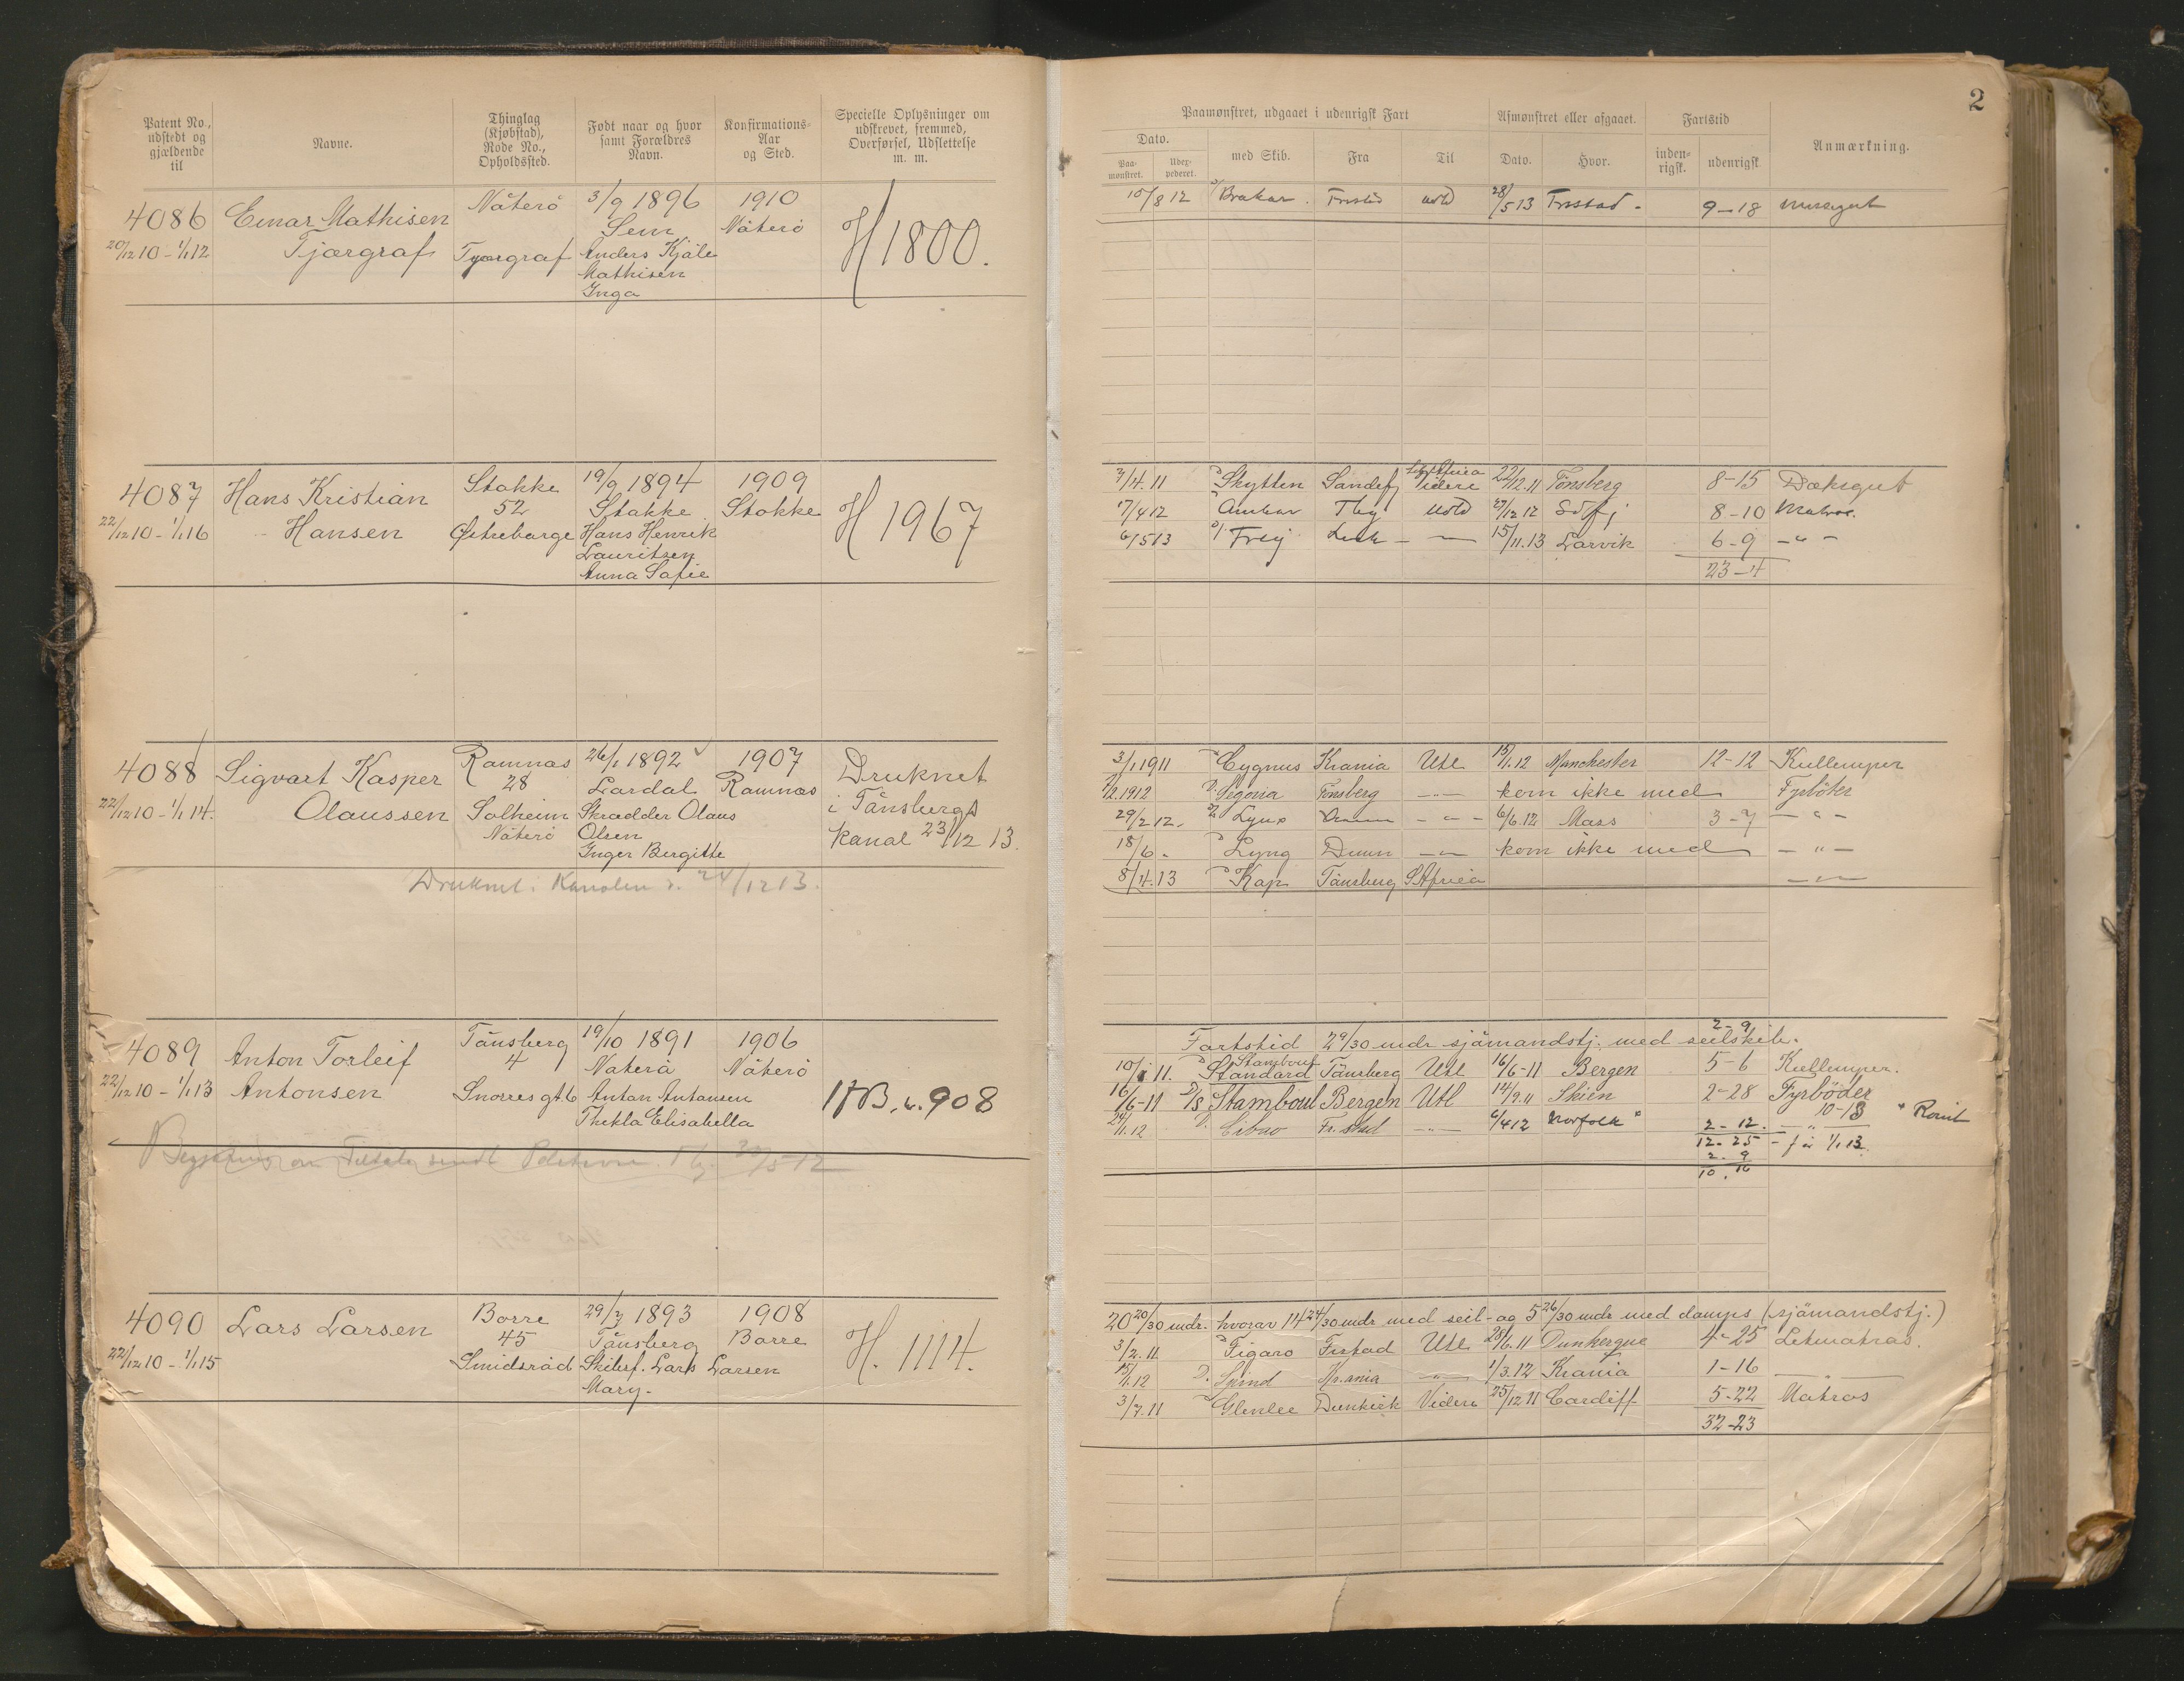 Patent No., udstedt og gjældende til
Navne.
Thinglag (Kjøbstad), Rode No., Opholdssted.
Født naar og hvor samt Forældres Navn.
Konfirmations-Aar og Sted.
Specielle Oplysninger om udskrevet, fremmed, Overførsel, Udslettelse m. m.
4086 Einar Mathisen Nåterö 3/9 1896 1910 H 1800.
20/12 10 - 1/1 12 Tjærgraf Tjærgraf Sem Nåterö
Anders Kjøle
Mathisen
Inga
4087 Hans Kristian Stokke 19/9 1894 1909 H 1967
22/12 10 - 1/1 16 Hansen 52 Stokke Stokke
Østreborge Hans Henrik
Lauritzen
Anna Sofie
4088 Sigvart Kasper Ramnæs 26/1 1892 1907 Druknet
22/12 10 - 1/1 14. Olaussen 28 Lardal Ramnæs i Tånsbergs
Solheim Skrædder Olaus kanal 23/12 13.
Nåterö Olsen
Inger Bergitte
Druknet i Kanalen d. 24/12 13.
4089 Anton Torleif Tånsberg 19/10 1891 1906
22/12 10 - 1/1 13 Antonsen 4 Nåterö Nåterö
Snorres gt. 6 Anton Antonsen 908
Thekla Elisabella
4090 Lars Larsen Borre 29/7 1893 1908 H. 1114.
22/12 10 - 1/1 15 45 Tånsberg Borre
Smidsrød Skibsf. Lars Larsen
Mary.
2
Paamønstret, udgaaet i udenrigsk Fart
Afmønstret eller afgaaet.
Fartstid
Anmærkning.
Dato.
Paa-mønstret.
Udex-pederet.
med Skib.
Fra
Til
Dato.
Hvor.
inden-rigsk.
udenrigsk
15/8 12 Brakar Frstad Utld 28/5 13 Frstad - 9-18 messegut
7/4.11 Skytten Sandefj Videre 22/12.11 Tönsberg 8-15 Dæksgut
7/4 12 Ambar Tbg Utld 27/12 12 Sdfj 8-10 Matros.
6/5 13 Freij 15/11.13 Larvik 6-9 -"-
23-4
3/1 1911 Cygnus Krania Utl 15/1.12 Manchester 12-12 Kullemper
2/2.1912 D. Segovia Tönsberg -"- kom ikke med Fyrböter
29/2 12. Lynx -"- 6/6.12 Mass 3-7 -"-
18/6 - Lyng -"- kom ikke med -"-
8/4.13 Kap Tånsberg S Africa -"-
2-9
Fartstid 29/30 mdr sjömandstj. med seilskib.
Stamboul
10/1 11. Standard Tånsberg Utl 16/6-11 Bergen 5-6 Kullemper.
16/6-11 D/S Stamboul Bergen Utl 14/9.11 Skien 2-28 Fyrböder
10-13
24/11.12 Fr.stad -"- 6/4 12 Norfolk 2-12. -"-
12-25 1/1 13.
2-9
10.16
20 20/30 mdr. hvorav 14 24/30 mdr med seil- og 5 26/30 mdr med damps (sjömandstj.)
3/2.11 Figaro Frstad Utl 28/6.11 Dunkerque 4-25 Letmatros.
15/1.12 D. Spind Kr.ania -"- 1/3.12 Krania 1-16 -"-
3/7.11 Glenlee Dunkirk Videre 25/12 11 Cardiff 5-22 Matros
32-23